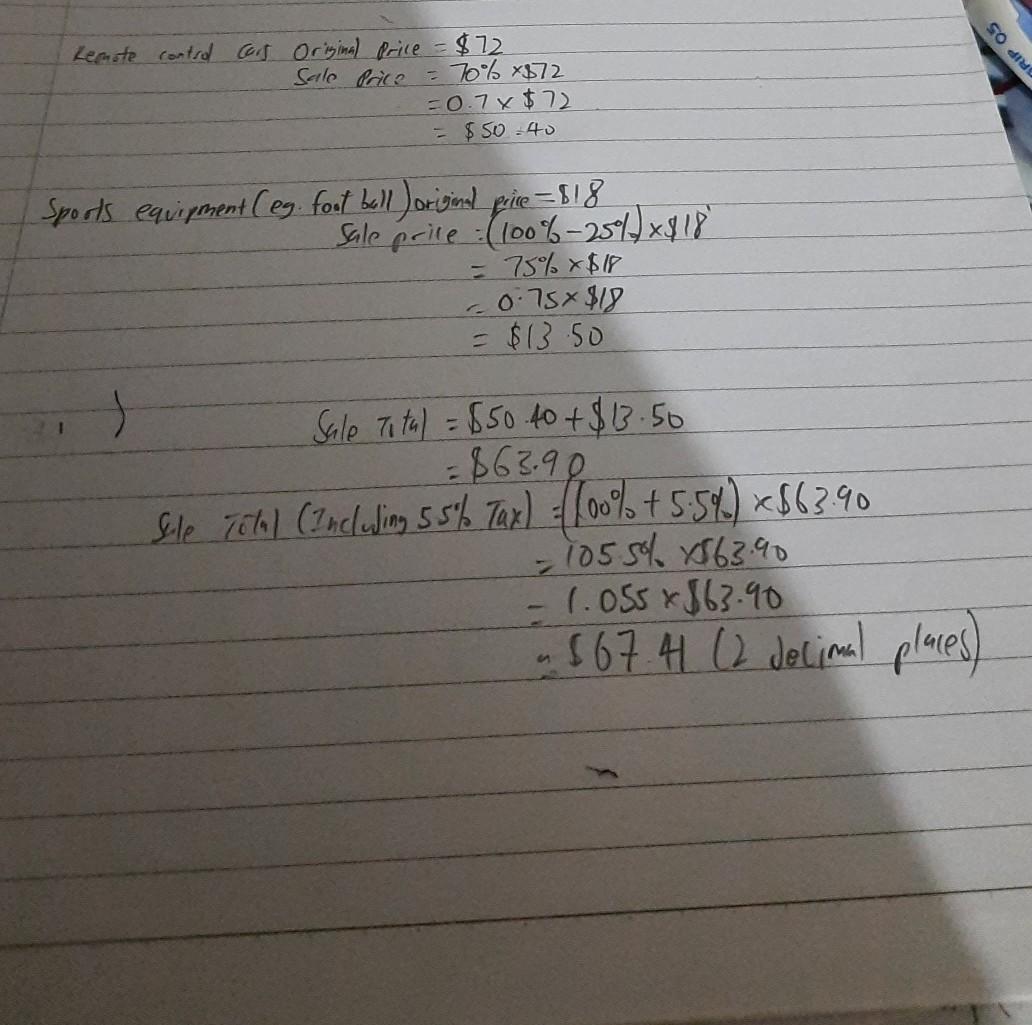 Remote control Cars Original Price = $72
Sale Price = 70% x $72
= 0.7 x $72
= $50.40
Sports equipment (eg. foot ball) original price = $18
Sale price = (100% - 25%) x $18
= 75% x $18
= 0.75 x $18
= $13.50
Sale Total = $50.40 + $13.50
= $63.90
Sale Total (Including 5.5% Tax) = (100% + 5.5%) x $63.90
= 105.5% x $63.90
= 1.055 x $63.90
= $67.41 (2 decimal places)
RIP 05